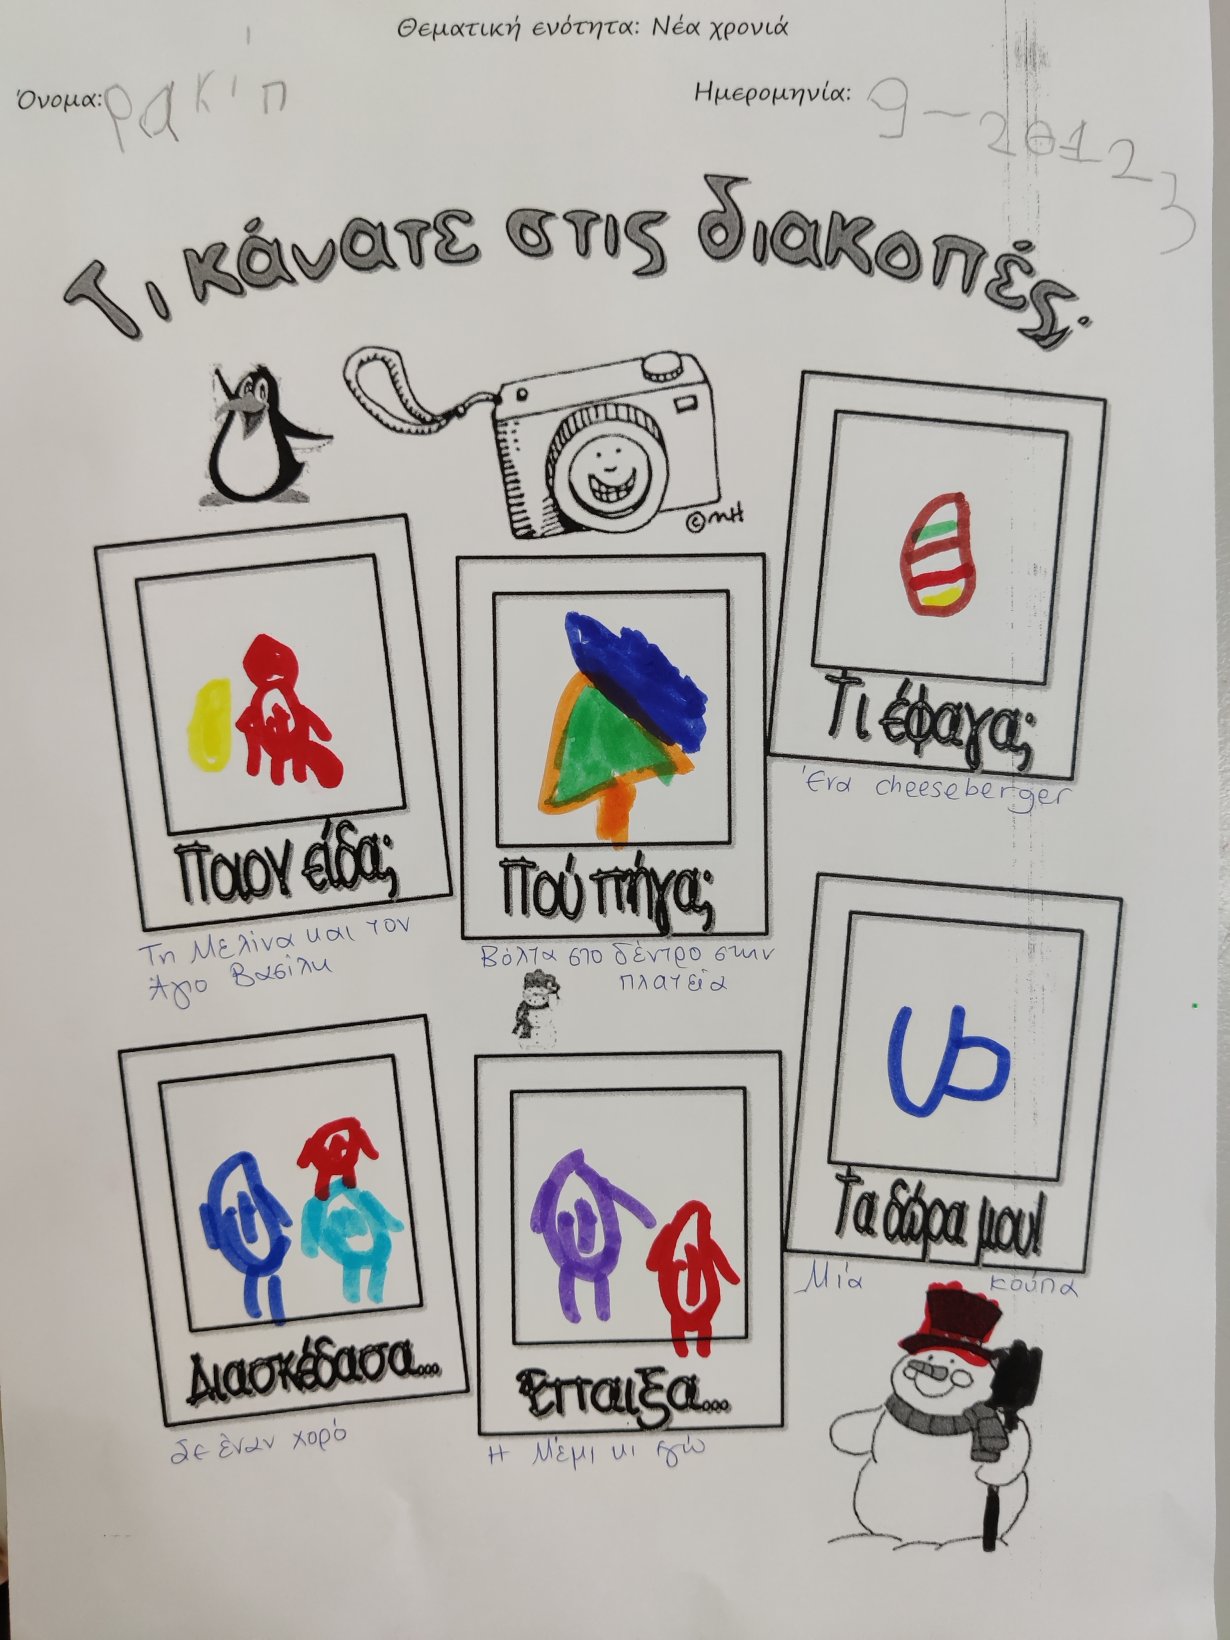 Θεματική ενότητα: Νέα χρονιά
Όνομα: ρακιπ
Ημερομηνία: 9-20123
Τι κάνατε στις διακοπές;
©MH
Τι έφαγα;
Ένα cheeseberger
Ποιον είδα;
Τη Μελίνα και τον
Άγιο Βασίλη
Πού πήγα;
Βόλτα στο δέντρο στην
πλατεία
Τα δώρα μου!
Μία κούπα
Διασκέδασα...
Σε έναν χορό
Έπαιξα...
Η Μέμι κι εγώ